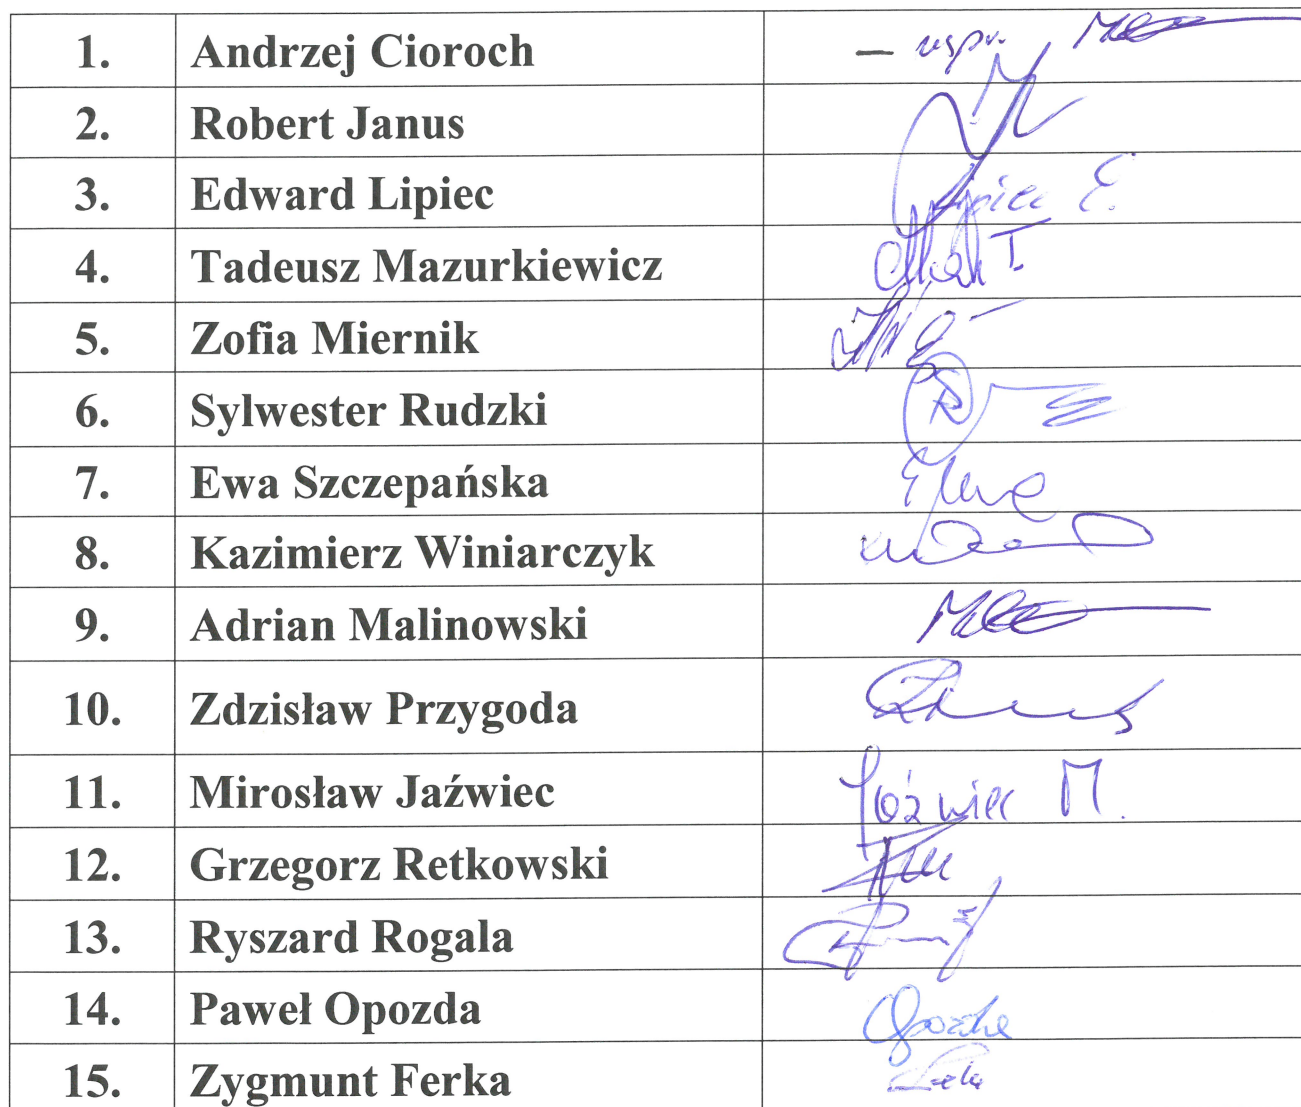 1. Andrzej Cioroch – uspr.
2. Robert Janus
3. Edward Lipiec Lipiec E.
4. Tadeusz Mazurkiewicz
5. Zofia Miernik
6. Sylwester Rudzki
7. Ewa Szczepańska
8. Kazimierz Winiarczyk
9. Adrian Malinowski
10. Zdzisław Przygoda
11. Mirosław Jaźwiec Jaźwiec M.
12. Grzegorz Retkowski
13. Ryszard Rogala
14. Paweł Opozda Opozda
15. Zygmunt Ferka